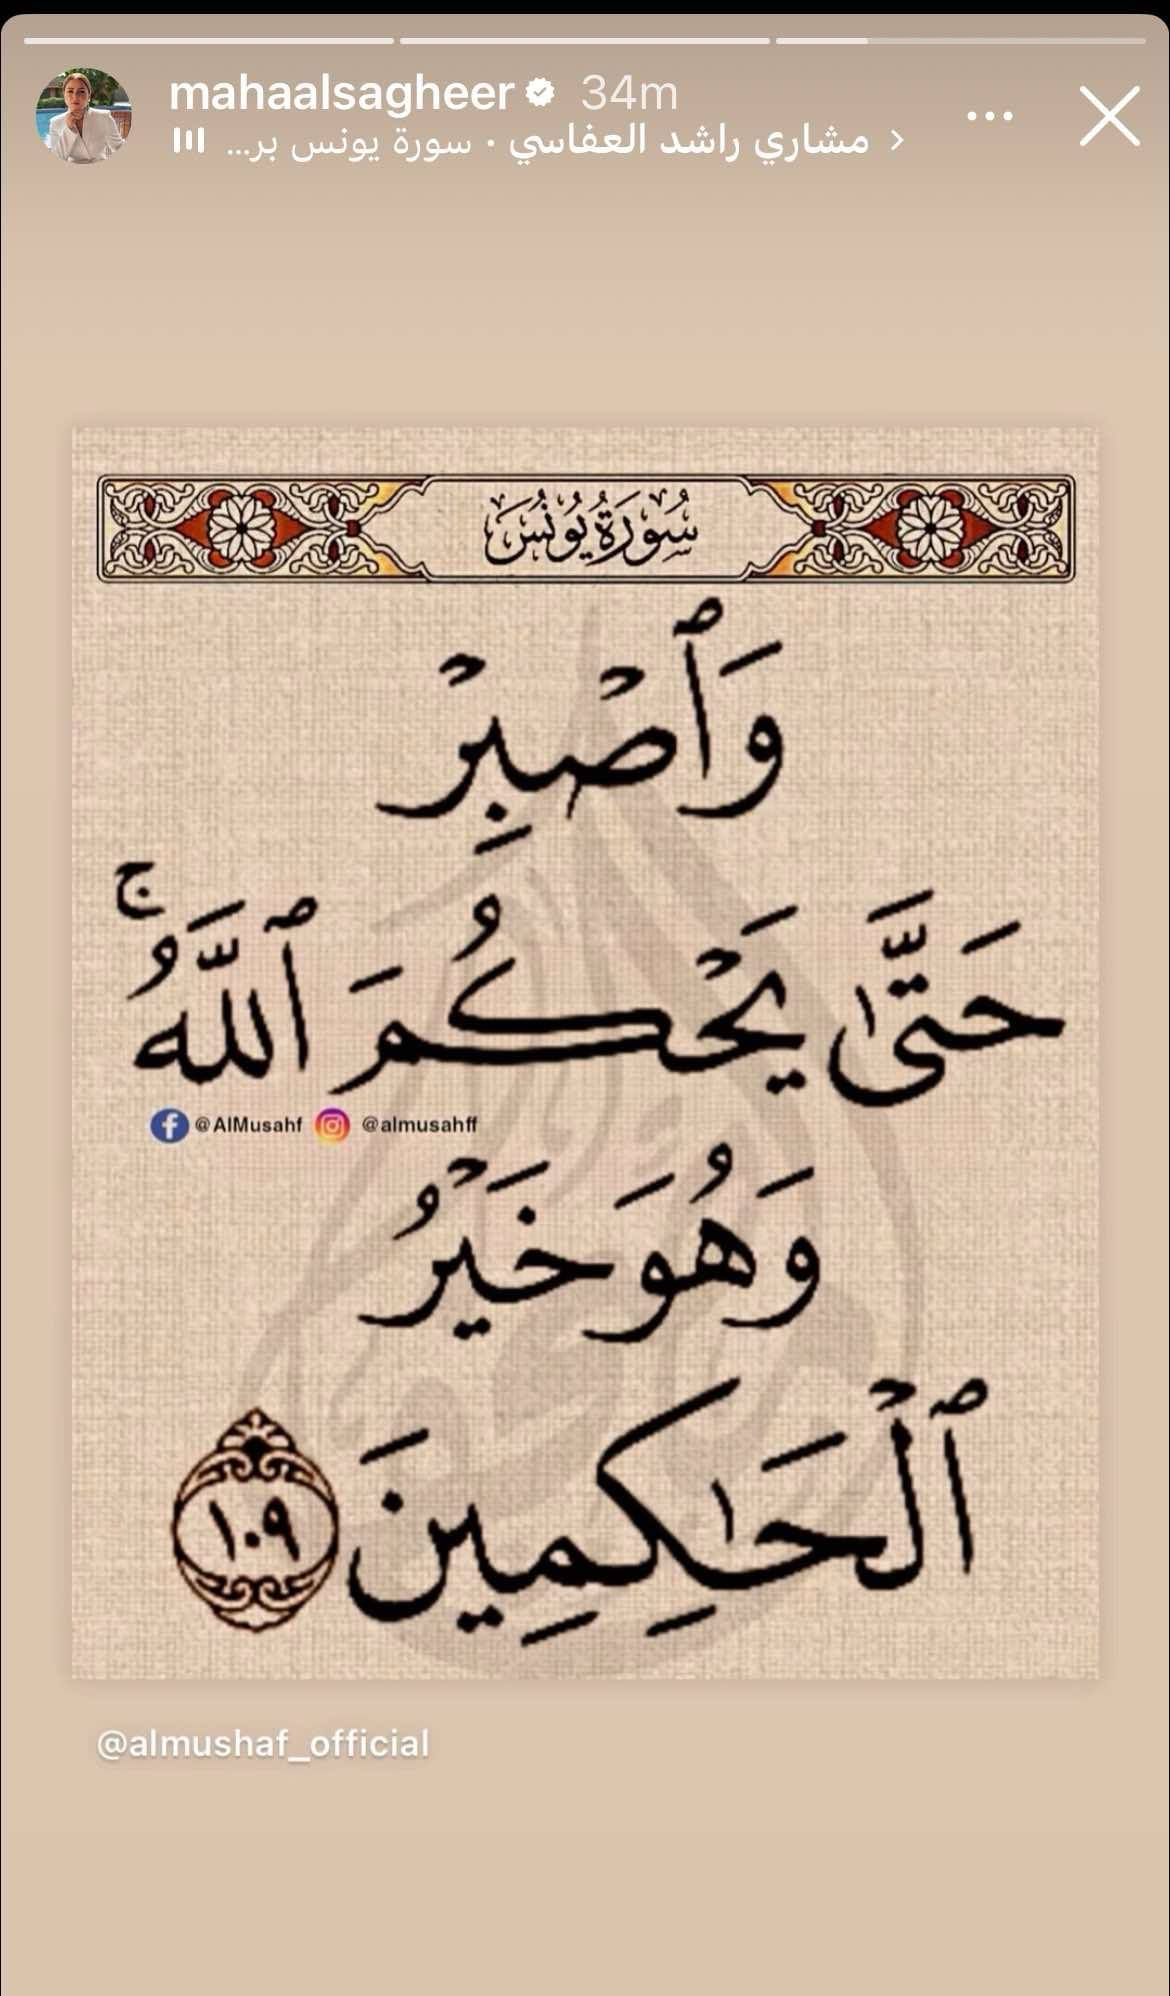 mahaalsagheer 34m
مشاري راشد العفاسي · سورة يونس بر...
سُورَةُ يُونُسَ
وَٱصْبِرْ
حَتَّىٰ يَحْكُمَ ٱللَّهُ ۚ
@AlMusahf @almusahff
وَهُوَ خَيْرُ
ٱلْحَـٰكِمِينَ ١٠٩
@almushaf_official